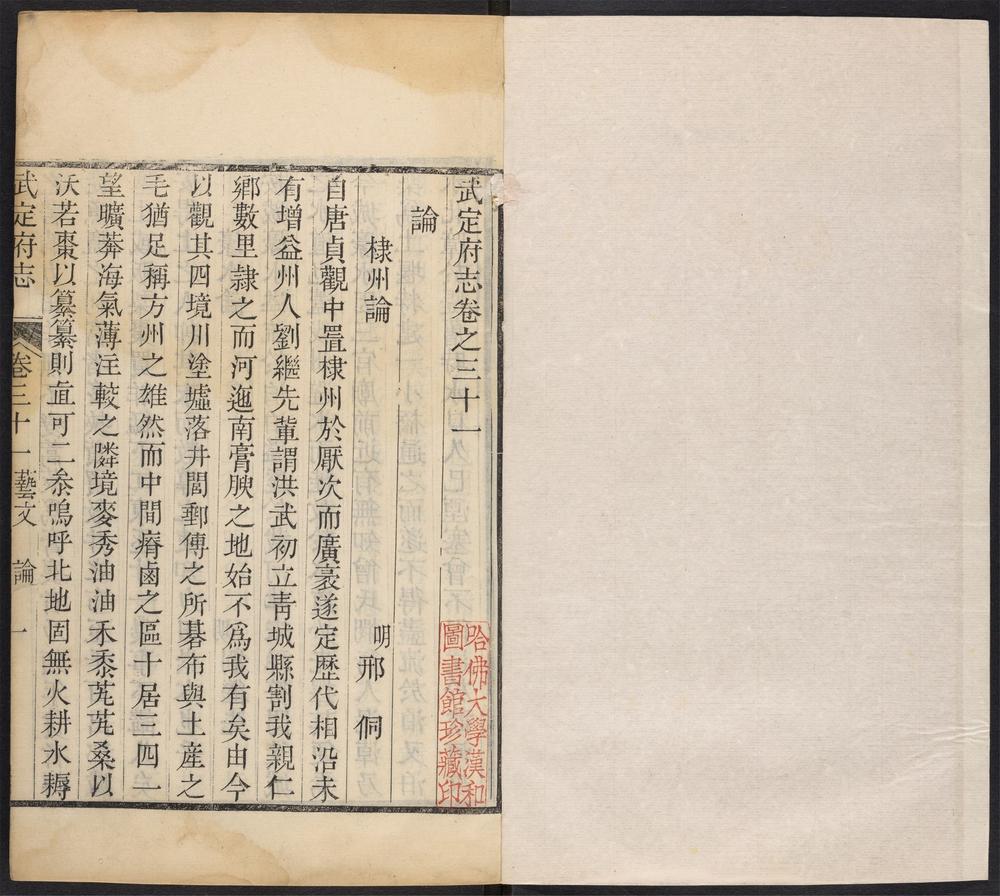 武定府志卷之三十一
論
棣州論
明邢侗
自唐貞觀中置棣州於厭次而廣袤遂定歷代相沿未
有增益州人劉繼先輩謂洪武初立青城縣割我親仁
鄉數里隷之而河迤南膏腴之地始不爲我有矣由今
以觀其四境川塗墟落井閭郵傳之所碁布與土產之
毛猶足稱方州之雄然而中間瘠鹵之區十居三四一
望曠莽海氣薄注較之隣境麥秀油油禾黍芃芃桑以
沃若棗以纂纂則畝可二叅嗚呼北地固無火耕水耨
武定府志 卷三十一 藝文 論 一
哈佛大學漢和
圖書館珍藏印